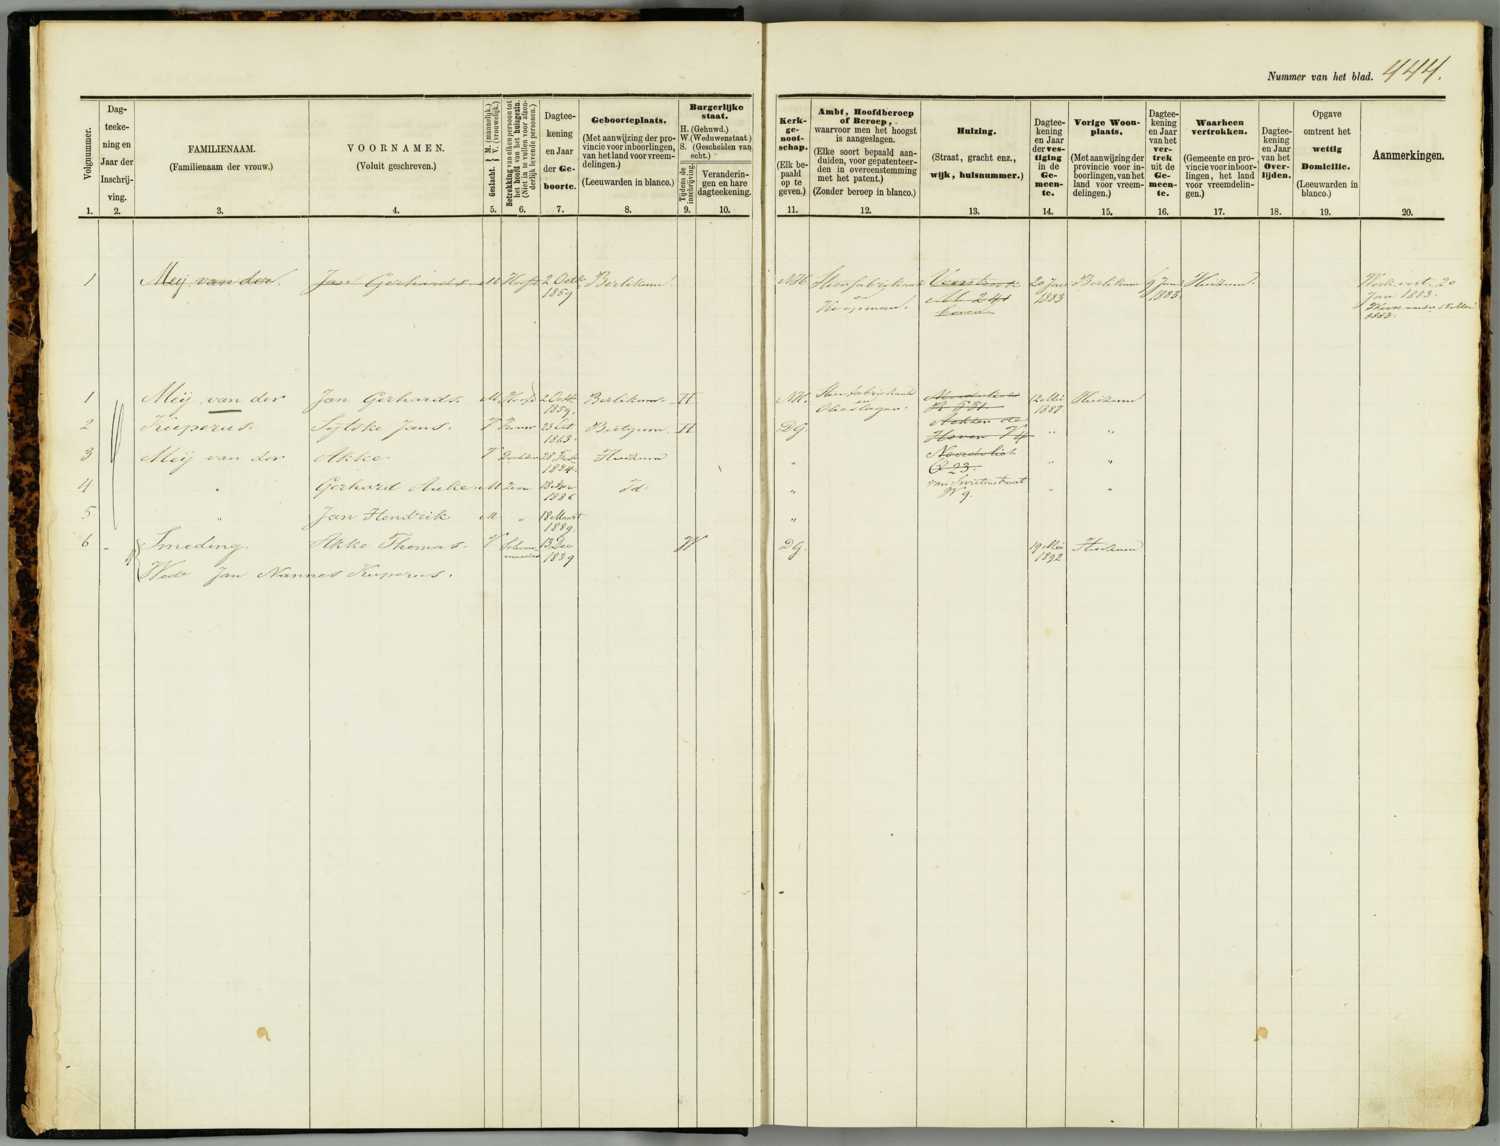 Nummer van het blad. 444.
Volgnummer.
1.
Dag-
teeke-
ning en
Jaar der
Inschrij-
ving.
2.
FAMILIENAAM.
(Familienaam der vrouw.)
3.
VOORNAMEN.
(Voluit geschreven.)
4.
Geslacht. { M. (mannelijk.) V. (vrouwelijk.)
5.
Betrekking van elken persoon tot
het hoofd van het huisgezin.
(Niet in te vullen voor afzon-
derlijk levende personen.)
6.
Dagtee-
kening
en Jaar
der Ge-
boorte.
7.
Geboorteplaats.
(Met aanwijzing der pro-
vincie voor inboorlingen,
van het land voor vreem-
delingen.)
(Leeuwarden in blanco.)
8.
Burgerlijke
staat.
H. (Gehuwd.)
W. (Weduwenstaat.)
S. (Gescheiden van
echt.)
Tijdens de
inschrijving.
9.
Veranderin-
gen en hare
dagteekening.
10.
Kerk-
ge-
noot-
schap.
(Elk be-
paald
op te
geven.)
11.
Ambt, Hoofdberoep
of Beroep,
waarvoor men het hoogst
is aangeslagen.
(Elke soort bepaald aan-
duiden, voor gepatenteer-
den in overeenstemming
met het patent.)
(Zonder beroep in blanco.)
12.
Huizing.
(Straat, gracht enz.,
wijk, huisnummer.)
13.
Dagtee-
kening
en Jaar
der ves-
tiging
in de
Ge-
meen-
te.
14.
Vorige Woon-
plaats.
(Met aanwijzing der
provincie voor in-
boorlingen, van het
land voor vreem-
delingen.)
15.
Dagtee-
kening
en Jaar
van het
ver-
trek
uit de
Ge-
meen-
te.
16.
Waarheen
vertrokken.
(Gemeente en pro-
vincie voor inboor-
lingen, het land
voor vreemdelin-
gen.)
17.
Dagtee-
kening
en Jaar
van het
Over-
lijden.
18.
Opgave
omtrent het
wettig
Domicilie.
(Leeuwarden in
blanco.)
19.
Aanmerkingen.
20.
1 Meij van der Jan Gerhards M Hoofd 2 Octb 1859 Berlikum NH en Koopman 20 Jan 1883 Berlikum 6 Juni 1883 Huizum
20 Jan 1883.
1 Meij van der Jan Gerhards M Hoofd 2 Octb 1859. Berlikum H NH. en 12 Mei 1887 Huizum
2 Kuperus. Sijtske Jans. V 23 1863. Beetgum H DG. Achter de Hoven " "
3 Meij van der Akke. V Dochter 28 1884. Huizum " 23. " "
4 " Gerhard Auke M Zoon 13 1886 Id. " van Swietenstraat 9. " "
5 " Jan Hendrik M " 18 Maart 1889 "
6 Smeding. Akke Thomas. V Schoonmoeder 13 Dec 1829 W DG. 19 Mei 1892 Huizum
Wede Jan Nannes Kuperus.